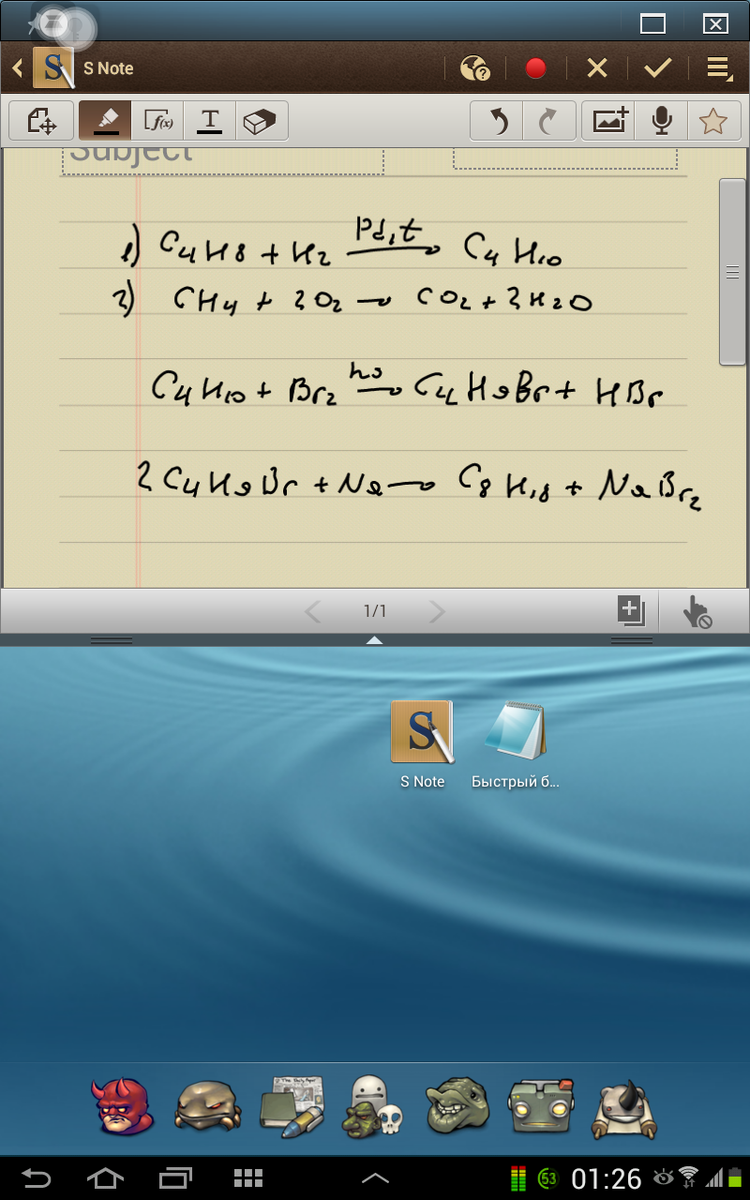 S Note
f(x)
T
Subject
1) C4H8 + H2 Pd,t → C4H10
2) CH4 + 2O2 → CO2 + 2H2O
C4H10 + Br2 hν → C4H9Br + HBr
2C4H9Br + Na → C8H18 + NaBr2
1/1
S Note
Быстрый б...
53
01:26